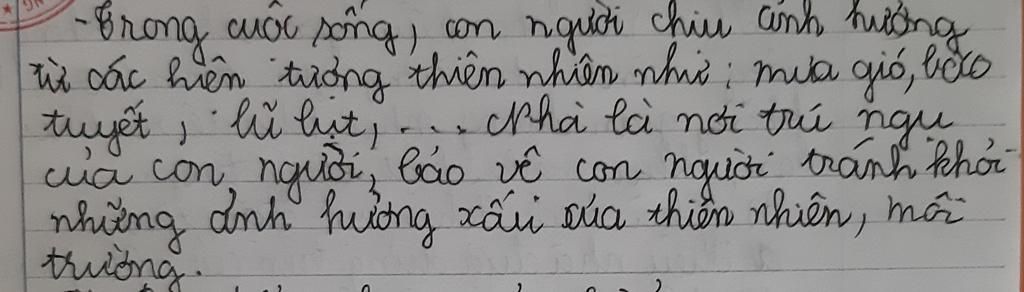 - Trong cuộc sống, con người chịu ảnh hưởng
từ các hiện tượng thiên nhiên như: mưa gió, bão
tuyết, lũ lụt,... Nhà là nơi trú ngụ
của con người, bảo vệ con người tránh khỏi
những ảnh hưởng xấu của thiên nhiên, môi
trường.